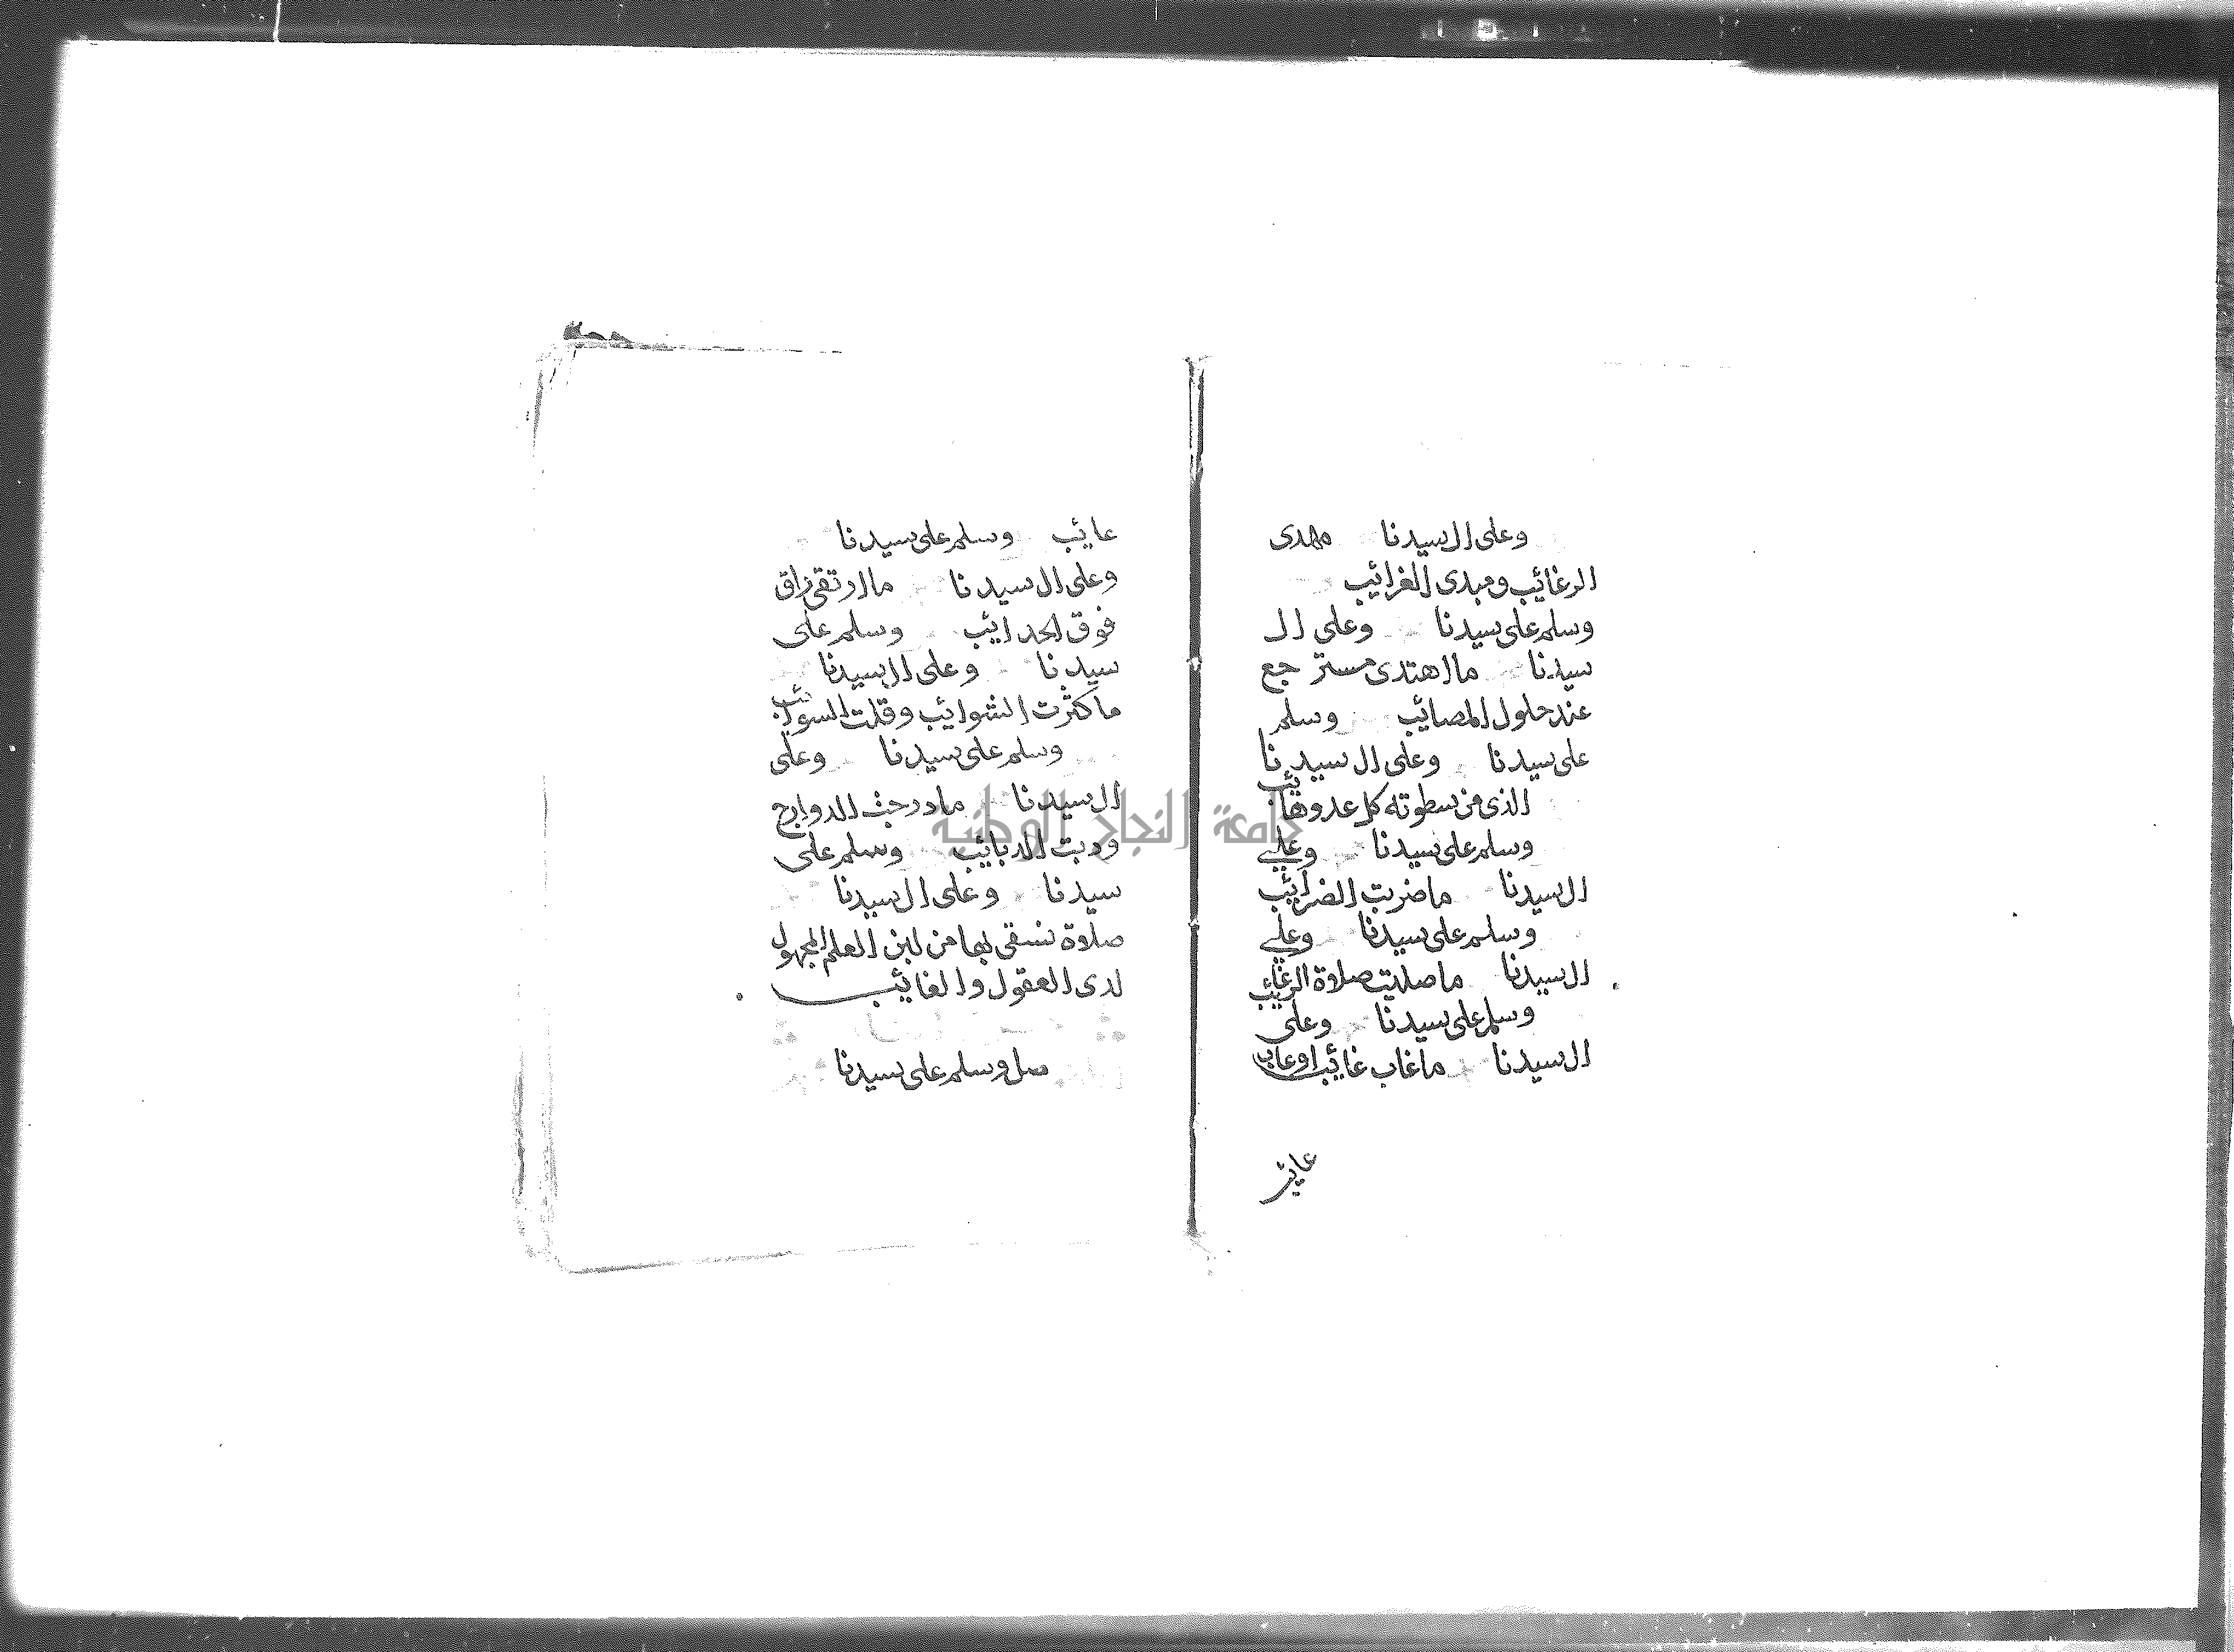 وعلى ال سيدنا مهدى
الرغائب ومبدى الغرائب
وسلم على سيدنا وعلى ال
سيدنا ما اهتدى مسترجع
عند حلول المصائب وسلم
على سيدنا وعلى ال سيدنا
الذى من سطوته كل عدوهائب
وسلم على سيدنا وعلى
ال سيدنا ما ضربت الضرائب
وسلم على سيدنا وعلى
ال سيدنا ما صليت صلاة الرغائب
وسلم على سيدنا وعلى
ال سيدنا ما غاب غائب اوعاب
عائب
عائب وسلم على سيدنا
وعلى ال سيدنا ما ارتقى راق
فوق الحدائب وسلم على
سيدنا وعلى ال سيدنا
ما كثرت الشوائب وقلت السوائب
وسلم على سيدنا وعلى
ال سيدنا ما درجت الدوارج
ودبت الدبائب وسلم على
سيدنا وعلى ال سيدنا
صلاة نسقى بها من لبن العلم المجهول
لدى العقول والغائب
صل وسلم على سيدنا
جامعة النجاح الوطنية